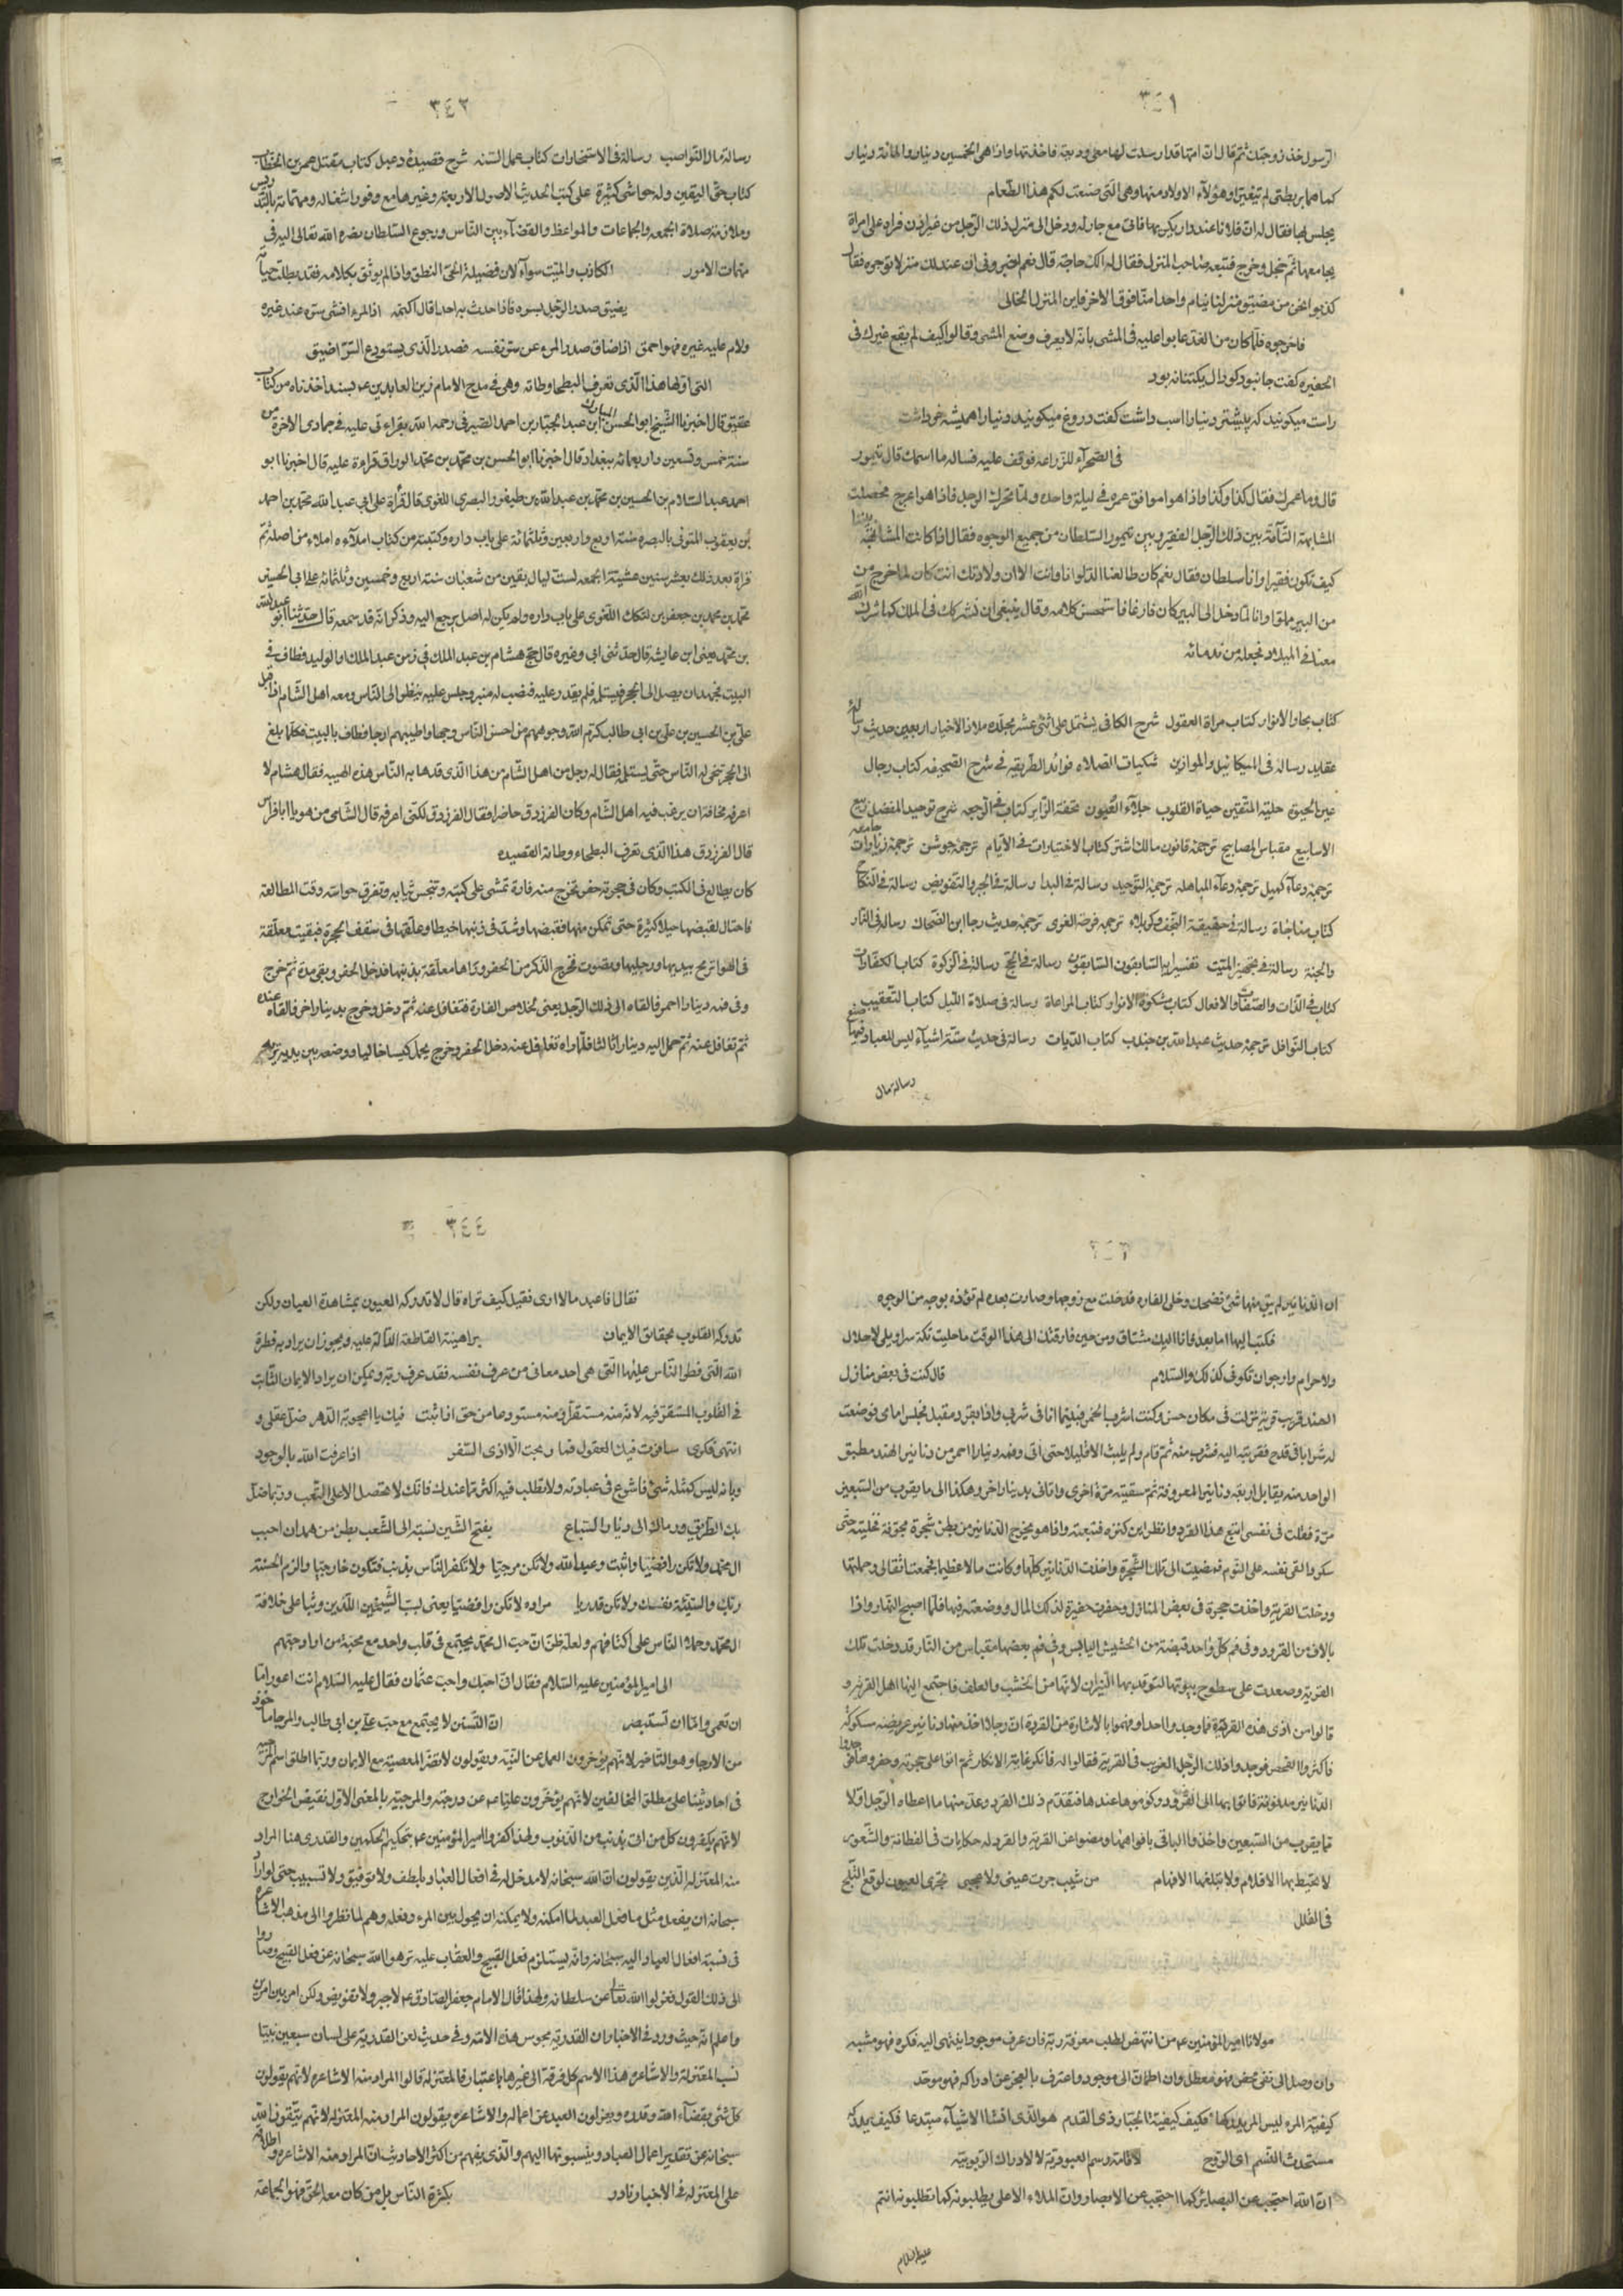 ٣٤١
الرسول خذ زوجتك ثم قال ان امها قد ارسلت لها معي وديعة فاخذتها واذا هي الخمسين دينار والمائة دينار
كما هما بربطتى لم تتغيرا وهؤلآء الاولاد منها وهى التى صنعت لكم هذا الطعام
يجلس لها فقال له ان فلانا عنده ولم يكن بها فاتى مع جار له ودخل الى منزل ذلك الرجل من غير اذن فراه على امراة
يجامعها ثم خجل وخرج فتبعه صاحب المنزل فقال له الك حاجة قال نعم اخبرونى ان عندك منزلا نوجره فقال
كذبوا نحن من مضيق منزلنا ينام واحد منا فوق الاخر فاين المنزل الخالى
فاخرجوه فلما كان من الغد عابوا عليه فى المشى بانه لا يعرف وضع المشى وقالوا كيف لم يقع غيرك فى
الحفيره كفت جانبود كودال يكتنانه بود
راست ميكونيد كه پيشتر دنيا را اسب داشت كفت دروغ ميكونيد دنيا را هميشه خر داشت
فى الصحرآء للزراعه فوقف عليه فساله ما اسمك قال تيمور
قال وما عمرك فقال كذا وكذا واذا هو موافق عمره فى ليلة واحده ولما تحرك الرجل فاذا هو اعرج فحصلت
المشابهة التآمّة بين ذلك الرجل الفقير وبين تيمور السلطان من جميع الوجوه فقال اذا كانت المشابهة بيننا
كيف تكون فقيرا وانا سلطان فقال نعم كان طالعنا الدلو انا وانت الا ان ولادتك انت كان لما خرج من
من البير ملوّا وانا لما دخل الى البير كان فارغا فاستحسن كلامه وقال ينبغى ان نشركك فى الملك كما شرك الله
معنا فى الميلاد فجعله من ندمائه
كتاب بحار الانوار كتاب مراة العقول شرح الكافى يشتمل على اثنى عشر مجلده ملاذ الاخيار اربعين حديث رسالة
عقايد رسالة فى المكائيل والموازين شكيات الصلاه فوائد الطريقه فى شرح الصحيفه كتاب رجال
عين الحيوة حلية المتقين حياة القلوب جلآء العيون تحفة الزآير كتاب فى الرجعه شرح توحيد المفضل ربيع
الاسابيع مقباس المصابيح ترجمة قانون مالك اشتر كتاب الاختيارات فى الايام ترجمة جوشن ترجمة زيارات جامعه
ترجمة دعآء كميل ترجمة دعآء المباهله ترجمة التوحيد رسالة فى البدا رسالة فى الجبر والتفويض رسالة فى النكاح
كتاب مناجاة رسالة فى حقيقة النجف وكربلاء ترجمه فرحة الغرى ترجمة حديث رجا ابن الضحاك رسالة فى النار
والجنة رسالة فى تجهيز الميّت تفسير اية السابقون السابقون رسالة فى الحج رسالة فى الزكوة كتاب الكفارات
كتاب فى الذات والصفات والافعال كتاب مشكوة الانوار كتاب المراعاة رسالة فى صلاة الليل كتاب التعقيب
كتاب النوافل ترجمة حديث عبد الله بن جندب كتاب الديات رسالة فى حديث ستة اشيآء ليس للعباد فيها صنع
رسالة مال
٣٤٢
رسالة مال النواصب رسالة فى الاستخارات كتاب عمل السنه شرح قصيدة دعبل كتاب مقتل عمر بن الخطاب
كتاب حق اليقين وله حواشى كثيرة على كتب الحديث الاصول الاربعة وغيرها مع وفور اشغاله ومهماته بالتدريس
وملازمة صلاة الجمعه والجماعات والمواعظ والقضآء بين الناس ورجوع السلطان نصره الله تعالى اليه فى
مهمات الامور الكاذب والميّت سوآء لان فضيلة الحىّ النطق واذا لم يوثق بكلامه فقد بطلت حياته
يضيق صدر الرجل بسره فاذا حدث به احدا قال اكتمه اذا المرء افشى سره عند غيره
ولام عليه غيره فهو احمق اذا ضاق صدر المرء عن سر نفسه فصدر الذى يستودع السرّ اضيق
التى اولها هذا الذى تعرف البطحا وطاته وهى فى مدح الامام زين العابدين ع بسند اخذناه من كتاب
عقيق قال اخبرنا الشيخ ابو الحسن المبارك ابن عبد الجبار بن احمد الصيرفى رحمه الله بقرائتى عليه فى جمادى الاخرة من
سنة خمس وتسعين واربعمائه ببغداد قال اخبرنا ابو الحسن بن محمد بن محمد الوراق قراءة عليه قال اخبرنا ابو
احمد عبد السلام بن الحسين بن محمد بن عبد الله بن طيفور البصرى اللغوى قال قرأة على ابى عبد الله محمد بن احمد
بن يعقوب المتوفى بالبصره سنة اربع واربعين وثلثمائة على باب داره وكتبته من كتاب املآءه املاء من اصله ثم
قرأة بعد ذلك بعشر سنين عشية الجمعه لست ليال بقين من شعبان سنة اربع وخمسين وثلثمائه على ابى الحسين
محمد بن محمد بن جعفر بن لنكك اللغوى على باب داره ولم يكن له اصل يرجع اليه وذكر انه قد سمعه قال حدثنا ابو عبد الله
بن محمد يعنى ابن عايشه قال حدثنى ابى وغيره قال حج هشام بن عبد الملك فى زمن عبد الملك او الوليد فطاف فى
البيت فجهد ان يصل الى الحجر فيستلم فلم يقدر عليه فنصب له منبر وجلس عليه ينظر الى الناس ومعه اهل الشام اذ اقبل
على بن الحسين بن على بن ابى طالب كرم الله وجوههم من احسن الناس وجها واطيبهم ارجا فطاف بالبيت فكلما بلغ
الى الحجر تنحى له الناس حتى يستلم فقال له رجل من اهل الشام من هذا الذى قد هابه الناس هذه الهيبه فقال هشام لا
اعرفه مخافة ان يرغب فيه اهل الشام وكان الفرزدق حاضرا فقال الفرزدق لكنى اعرفه قال الشامى من هو يا ابا فراس
قال الفرزدق هذا الذى تعرف البطحاء وطاته القصيده
كان يطالع فى الكتب وكان فى حجرته حفر تخرج منه فارة تمشى على كتبه وتنجس ثيابه وتفرق حواسه وقت المطالعة
فاحتال لقبضها حيلا كثيرة حتى تمكن منها فقبضها وشدّ فى ذنبها خيطا وعلقها فى سقف الحجرة فبقيت معلّقة
فى الهوا تريح بيديها ورجليها وبصوت فخرج الذكر من الحفر وراها معلقة بذنبها فدخل الحفر وبقى مدة ثم خرج
وفى فمه دينارا احمر فالقاه الى ذلك الرجل يعنى خلاص الفارة فتغافل عنه ثم دخل وخرج بدينار اخر فالقاه عنده
ثم تغافل عنه ثم حمل اليه دينارا ثالثا فلما راه تغافل عنه دخل الحفر وخرج يحمل كيسا خاليا ووضعه بين يديه
ان الدنانير لم يبق منها شئ فضحك وخلى الفاره فدخلت مع زوجها وصارت بعده لم تؤذه بوجه من الوجوه
فكتب اليها اما بعد وانا اليك مشتاق ومن حين فارقتك الى هذا الوقت ما حليت تكة سراويلى لا حلال
ولا حرام وارجو ان تكونى كذلك والسلام قال كنت فى بعض منازل
الهند قريب قرية نزلت فى مكان حسن وكنت اشرب الخمر فبينما انا فى شربى واذا بقرد مقبل فجلس امامى فوضعت
له شرابا فى قدح فقربته اليه فشرب منه ثم قام ولم يلبث الا قليلا حتى اتى وفى فمه دينارا احمر من دنانير الهند مطبق
الواحد منه يقابل اربعه دنانير المعروفة ثم سقيته مرة اخرى واتانى بدينار اخر وهكذا الى ما يقرب من السبعين
مرة فقلت فى نفسى اتبع هذا القرد وانظر اين كنزه فتبعته واذا هو يخرج الدنانير من بطن شجرة مجوفة فخليته حتى
سكر والقى نفسه على النوم فمضيت الى تلك الشجرة واخذت الدنانير كلها وكانت مالا عظيما فجمعت اثقالى وحملتها
ودخلت القرية واخذت حجرة فى بعض المنازل وحفرت حفيرة لذلك المال ووضعته فيها فلما اصبح النهار واذا
بالاف من القرود وفى فم كل واحد قبضة من الحشيش اليابس وفى فم بعضها مقباس من النار قد دخلت تلك
القرية وصعدت على سطوح بيوتها لتوقد بها النيران لانها من الخشب والعلف فاجتمع اليها اهل القرية و
قالوا من اذى هذه القردة فما وجدوا احدا وفهموا بالاشارة من القردة ان رجلا اخذ منها دنانير عريضه سكوكه
فاكثروا الفحص فوجدوا ذلك الرجل الغريب فى القرية فقالوا له فانكر غاية الانكار ثم اتوا على حجرته وحفروها فوجدوا
الدنانير مدفونة فاتوا بها الى القرود وكوموها عندها فتقدم ذلك القرد وعدّ منها ما اعطاه الرجل اولا
مما يقرب من السبعين واخذوا الباقى بافواهها ومضوا عن القرية والقرد له حكايات فى الفطانة والشعور
لا تضبطها الاقلام ولا تبلغها الافهام من شيب جرت عينى ولا عجب تجرى العيون لوقع الثلج
فى القلل
مولانا امير المؤمنين ع من انتهض لطلب معرفة ربه فان عرف موجودا ينتهى اليه فكره فهو مشبه
وان وصل الى نفى محض فهو معطل وان اطمان الى موجود واعترف بالعجز عن ادراكه فهو موحّد
كيفية المرء ليس المرء يدركها فكيف كيفية الجبار ذى القدم هو الذى انشا الاشيآء مبتدعا فكيف يدركه
مستحدث النسم اى الروح لاقامة رسم العبودية لا لادراك الربوبية
ان الله احتجب عن البصائر كما احتجب عن الابصار وان الملاء الاعلى يطلبونه كما تطلبونه انتم
عليه السلام
٣٤٤
فقال افاعبد ما لا ارى فقيل كيف تراه قال لا تدركه العيون بمشاهدة العيان ولكن
تدركه القلوب بحقائق الايمان براهينة القاطعة الدآلة عليه ويجوز ان يراد به فطرة
الله التى فطر الناس عليها التى هى احد معانى من عرف نفسه فقد عرف ربه ويمكن ان يراد الايمان الثابت
فى القلوب المستقر فيه لانه منه مستقل ومنه مستودعا من حق اذا ثبت فيك يا اعجوبة الدهر ضلّ عقلى و
انتهى فكرى سافرت فيك العقول فما ربحت الا اذى السفر اذا عرفت الله بالوجود
وبانه ليس كمثله شئ فاشرع فى عبادته ولا تطلب فيه اكثر مما عندك فانك لا تحصل الا على التعب وربما ضل
بك الطريق ورماك الى دنيا والسباع بفتح الشين نسبة الى الشعب بطن من همدان احبب
ال محمد ولا تكن رافضيا واثبت وعيد الله ولا تكن مرجيا ولا تكفر الناس بذنب فتكون خارجيا والزم الحسنة
ربك والسيئة نفسك ولا تكن قدريا مراده لا تكن رافضيا يعنى لسبّ الشيخين اللذين وثبا على خلافة
ال محمد وحملا الناس على اكتافهم ولعله ظنّ ان حب ال محمد يجتمع فى قلب واحد مع محبة من اراد جتهم
الى امير المؤمنين عليه السلام فقال انى احبك واحب عثمان فقال عليه السلام انت اعور امّا
ان تعمى وامّا ان تستبصر ان التسنن لا يجتمع مع حب على بن ابى طالب والمرجا ماخوذ
من الارجا وهو التاخير لانهم يؤخرون العمل عن النية ويقولون لا تضر المعصية مع الايمان وربما اطلق اسم المرجئه
فى احاديثنا على مطلق المخالفين لانهم يؤخرون عليا ع عن درجته والمرجية بالمعنى الاول نقيض الخوارج
لانهم يكفرون كل من اتى بذنب من الذنوب ولهذا كفروا امير المؤمنين ع بتحكيم الحكمين والقدرى هنا المراد
منه المعتزلة الذين يقولون ان الله سبحانه لا مدخل له فى افعال العباد بلطف ولا توفيق ولا تسبيب حتى لو اراد
سبحانه ان يفعل مثل ما فعل العبد لما امكنه ولا يمكنه ان يحول بين المرء وفعله وهم لما نظروا الى مذهب الاشاعره
فى نسبة افعال العباد اليه سبحانه وانه يستلزم فعل القبيح والعقاب عليه نزهوا الله سبحانه عن فعل القبيح وصاروا
الى ذلك القول فعزلوا الله تعالى عن سلطانه ولهذا قال الامام جعفر الصادق ع لا جبر ولا تفويض ولكن امر بين امرين
واعلم انه حيث ورد فى الاخبار ان القدرية مجوس هذه الامة وفى حديث لعن القدرية على لسان سبعين نبيّا
نسب المعتزلة والاشاعره هذا الاسم كل فرقة الى غيرها باعتبار فالمعتزله قالوا المراد منه الاشاعره لانهم يقولون
كل شئ بقضآء الله وقدره ويعزلون العبد عن اعماله والاشاعره يقولون المراد منه المعتزله لانهم ينفون الله
سبحانه عن تقدير اعمال العباد وينسبونها اليهم والذى يفهم من اكثر الاحاديث ان المراد منه الاشاعره واطلاقه
على المعتزله فى الاخبار نادر بكثرة الناس بل من كان معه الحق فهو الجماعة